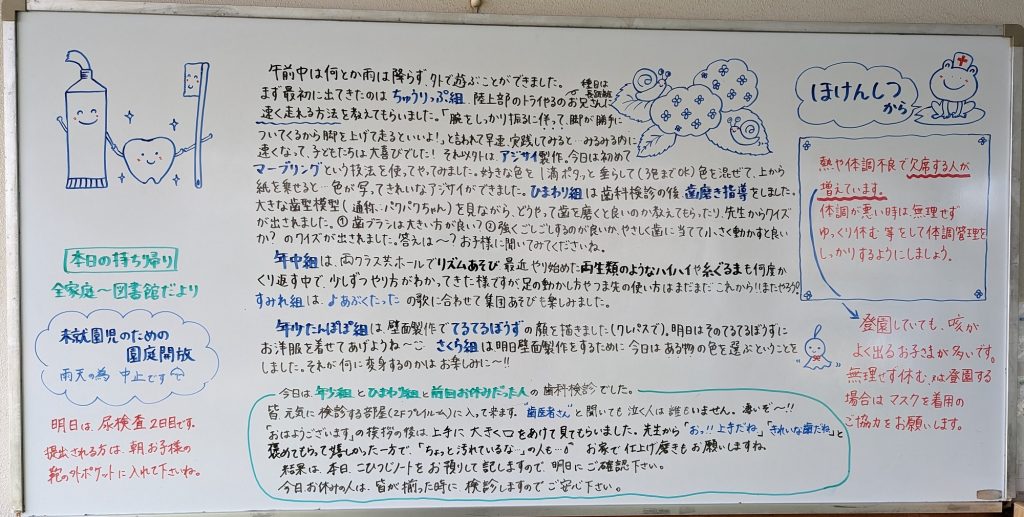 本日の持ち帰り
全家庭～図書館だより
未就園児のための
園庭開放
雨天の為 中止です
明日は、尿検査2日目です。
提出される方は、朝お子様の
靴の外ポケットに入れて下さいね。
午前中は何とか雨は降らず、外で遊ぶことができました。
まず最初に出てきたのは ちゅうりっぷ組、陸上部のトライやるのお兄さんに
種目は
長距離
速く走れる方法を教えてもらいました。「腕をしっかり振るに伴って、脚が勝手に
ついてくるから脚を上げて走るといいよ!」と言われて早速、実践してみると…みるみる内に
速くなって、子どもたちは大喜びでした! それ以外は、アジサイ製作。今日は初めて
マーブリングという技法を使ってやってみました。好きな色を1滴ポタッと垂らして(3色までOK)色を混ぜて、上から
紙を乗せると…色が写ってきれいなアジサイができました。ひまわり組は歯科検診の後、歯磨き指導をしました。
大きな歯型模型(通称:パクパクちゃん)を見ながら、どうやって歯を磨くと良いのか教えてもらったり、先生からクイズ
が出されました。①歯ブラシは大きい方が良い?②強くごしごしするのが良いか、やさしく歯に当てて小さく動かすと良い
か? のクイズが出されました。答えは～?お子様に聞いてみてくださいね。
年中組は、両クラス共ホールでリズムあそび 最近やり始めた両生類のようなハイハイや糸ぐるまも何度か
くり返す中で、少しずつやり方がわかってきた様ですが足の動かし方やつま先の使い方はまだまだこれから!!またやろう!
すみれ組は、よあぶくたった の歌に合わせて集団あそびも楽しみました。
年少たんぽぽ組は 壁面製作で てるてるぼうず の顔を描きました(クレパスで)。明日はそのてるてるぼうずに
お洋服を着せてあげようね～ さくら組は明日壁面製作をするために今日はある物の色を選ぶということを
しました。それが何に変身するのかはお楽しみに～!!
今日は、年少組とひまわり組と前回お休みだった人の歯科検診でした。
皆 元気に検診する部屋(2Fプレイルーム)に入って来ます。"歯医者さん"と聞いても泣く人は誰もいません。凄いぞ～!!
「おはようございます」の挨拶の後は、上手に大きく口をあけて見てもらいました。先生から「おっ!!上手だね」「きれいな歯だね」と
褒めてもらって嬉しかった一方で、「ちょっと汚れているな…」の人も… お家で仕上げ磨きもお願いしますね。
結果は、本日、こひつじノートをお預りして記しますので、明日にご確認下さい。
今日、お休みの人は、皆が揃った時に、検診しますのでご安心下さい。
ほけんしつ
から
熱や体調不良で欠席する人が
増えています。
体調が悪い時は、無理せず
ゆっくり休む 等をして体調管理を
しっかりするようにしましょう。
登園していても、咳が
よく出るお子さまが多いです。
無理せず休む、又は登園する
場合は マスクを着用の
ご協力をお願いします。